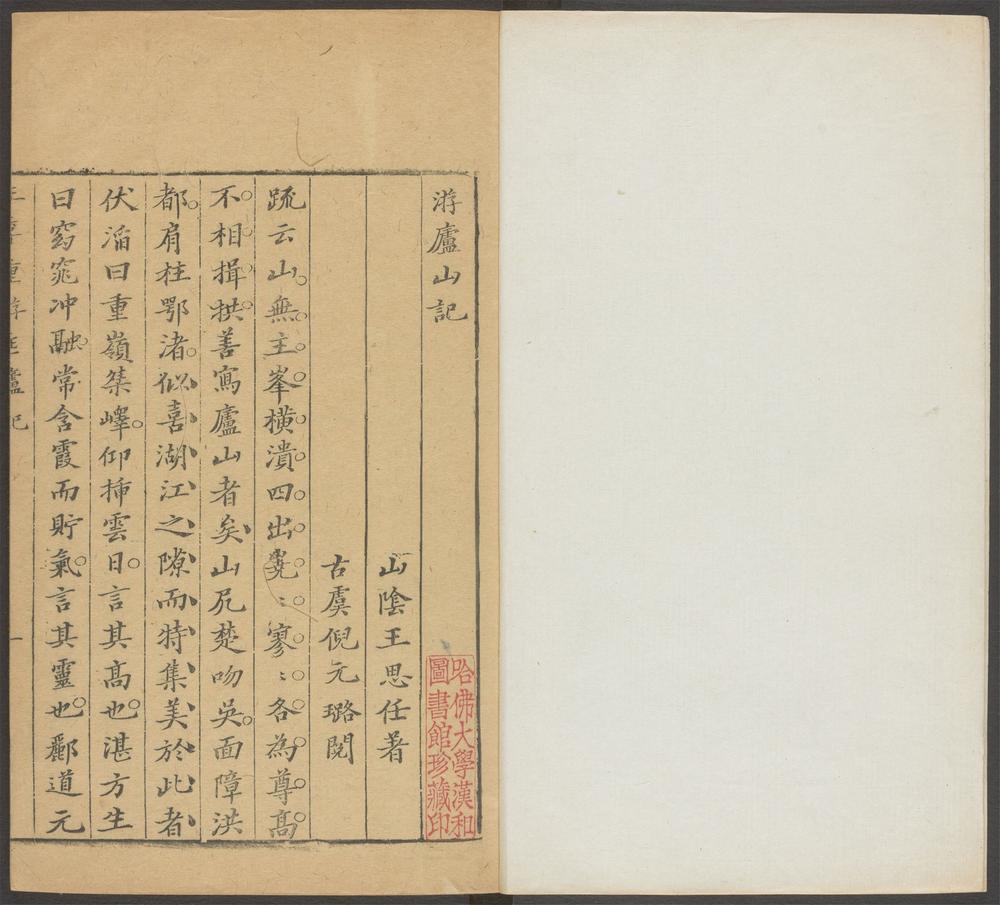 游廬山記
山陰王思任著
古虞倪元璐閱
䟽云山無主峯橫潰四出嶤〻寥〻各為尊高
不相揖拱善寫廬山者矣山尻楚吻吳面障洪
都肩柱鄂渚似喜湖江之隙而特集美於此者
伏滔曰重嶺桀嶧仰揷雲日言其高也湛方生
曰窈窕冲融常含霞而貯氣言其靈也酈道元
哈佛大學漢和
圖書館珍藏印